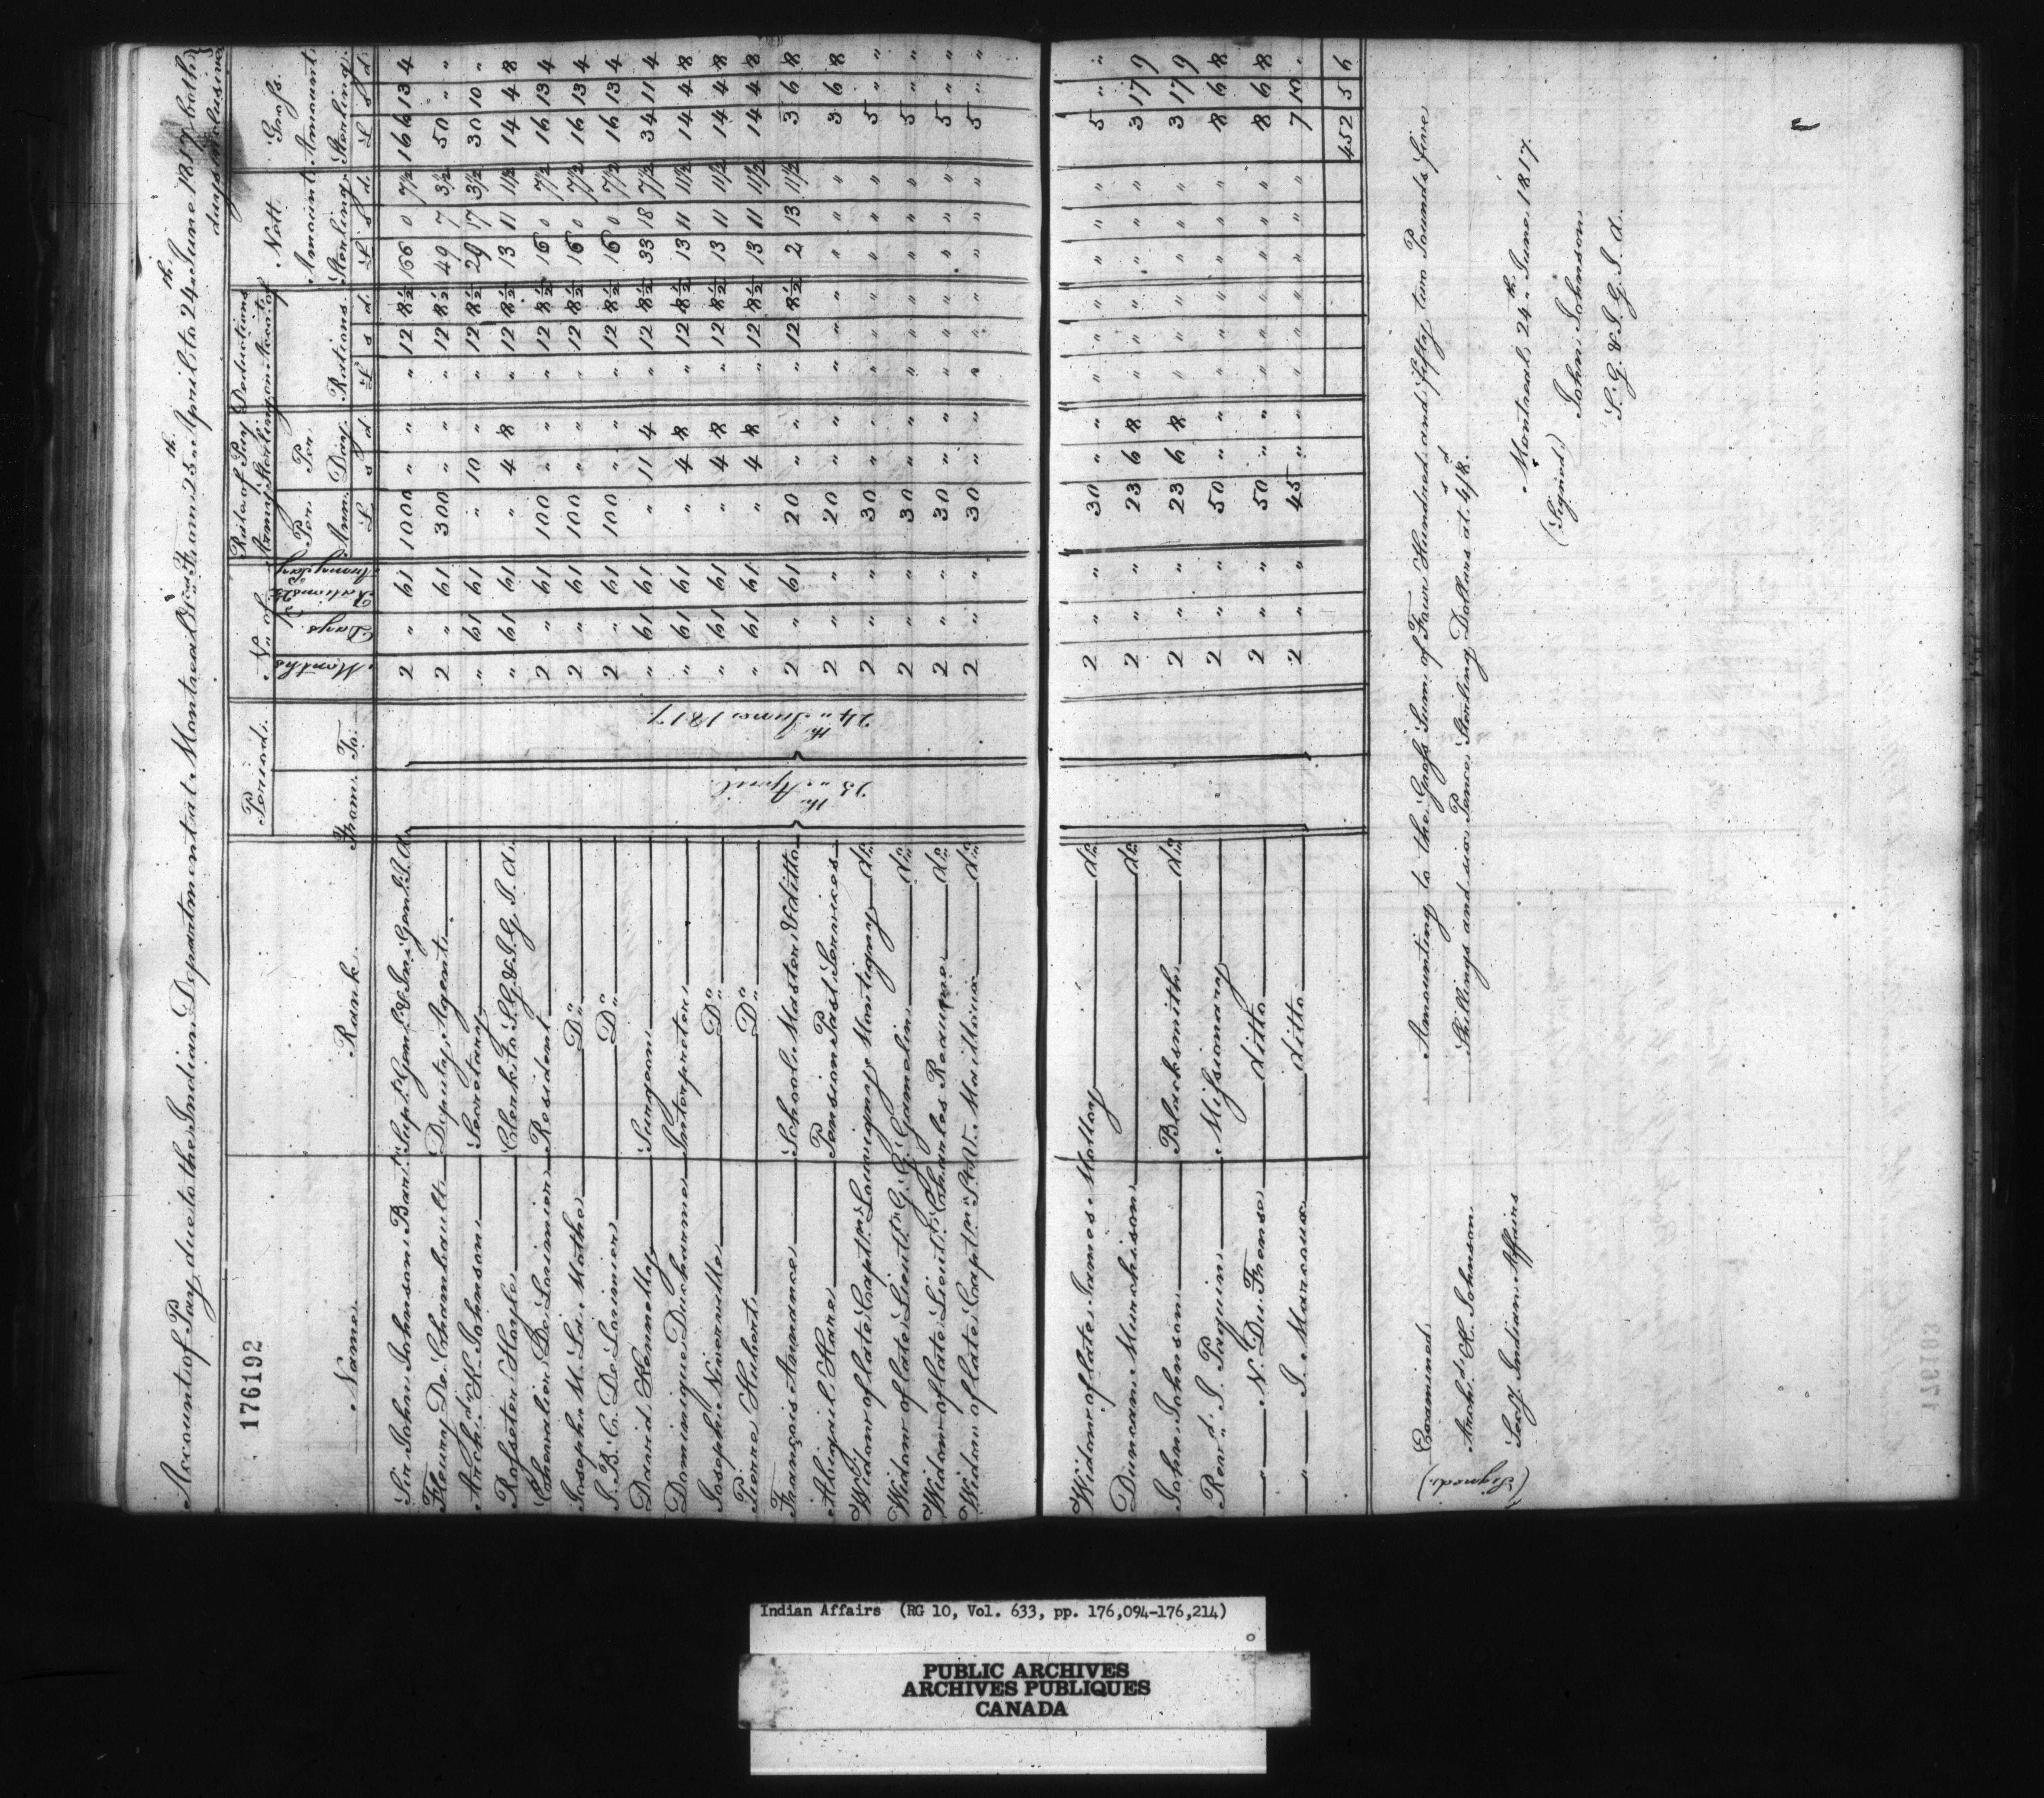 Account of Pay due to the Indian Department at Montreal From 25th April to 24th June 1817 both days inclusive
176192
Name Rank Period No. of Rate of Pay Army Sterling Deductions on Acct of Nett Amount Sterling Gross Amount Sterling
From To Months Days Rations Per Ann. Per Day Rations
£ s d £ s d £ s d £ s d
25th April 24th June 1817
Sir John Johnson Bart. Supt. Genl. & Ins. Genl. I. d. 2 " 61 1000 " " " 12 8½ 166 0 7½ 166 13 4
Fleury De Chambault Deputy Agent 2 " 61 300 " " " 12 8½ 49 7 3½ 50 " "
Archd. K. Johnson Secretary " 61 61 " 10 " " 12 8½ 29 17 3½ 30 10 "
Rosseter Hoyle Clerk to S. G. & I. G. I. d. " 61 61 " 4 8 " 12 8½ 13 11 11½ 14 4 8
Chevalier De Lorimier Resident 2 " 61 100 " " " 12 8½ 16 0 7½ 16 13 4
Joseph M. La Mothe Do. 2 " 61 100 " " " 12 8½ 16 0 7½ 16 13 4
J. B. C. De Lorimier Do. 2 " 61 100 " " " 12 8½ 16 0 7½ 16 13 4
David Kennelley Surgeon " 61 61 " 11 4 " 12 8½ 33 18 7½ 34 11 4
Dominique Ducharme Interpreter " 61 61 " 4 8 " 12 8½ 13 11 11½ 14 4 8
Joseph Niverville Do. " 61 61 " 4 8 " 12 8½ 13 11 11½ 14 4 8
Pierre Hubert Do. " 61 61 " 4 8 " 12 8½ 13 11 11½ 14 4 8
François Annance School Master & ditto 2 " 61 20 " " " 12 8½ 2 13 11½ 3 6 8
Abigail Hare Pension Past Services 2 " " 20 " " " " " " " " 3 6 8
Widow of late Captn. Louvigny Montigny do. 2 " " 30 " " " " " " " " 5 " "
Widow of late Lieut. G. G. Gamelin do. 2 " " 30 " " " " " " " " 5 " "
Widow of late Lieut. Charles Reaume do. 2 " " 30 " " " " " " " " 5 " "
Widow of late Captn. St. V. Mailloux do. 2 " " 30 " " " " " " " " 5 " "
Widow of late James Molloy do. 2 " " 30 " " " " " " " " 5 " "
Duncan Murchison do. 2 " " 23 6 8 " " " " " " 3 17 9
John Johnson Blacksmith do. 2 " " 23 6 8 " " " " " " 3 17 9
Revd. J. Paquin Missionary 2 " " 50 " " " " " " " " 8 6 8
" N. Du Frense ditto 2 " " 50 " " " " " " " " 8 6 8
" J. Marcoux ditto 2 " " 45 " " " " " " " " 7 10 "
452 5 6
Amounting to the Gross Sum of Four Hundred and fifty two Pounds five
Shillings and six Pence Sterling Dollars at 4s/8d.
Examined
(Signed) Archd. K. Johnson
Secy. Indian Affairs
Montreal 24th June 1817.
(Signed) John Johnson
S. G. & I. G. I. d.
Indian Affairs (RG 10, Vol. 633, pp. 176,094-176,214)
PUBLIC ARCHIVES
ARCHIVES PUBLIQUES
CANADA